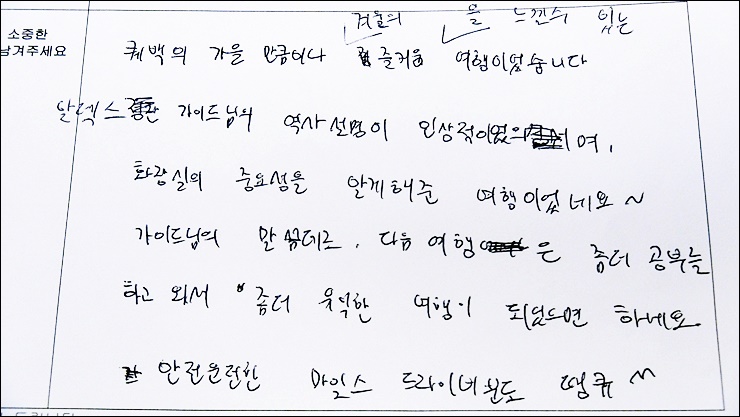 소중한
남겨주세요
겨울의 을 느낀수 있는
퀘백의 가을 만큼이나 즐거움 여행이었습니다
알렉스 가이드님의 역사 설명이 인상적이었으며,
화장실의 중요성을 알게해준 여행이었네요~
가이드님의 말씀대로, 다음 여행은 좀더 공부늘
하고 와서 좀더 유익한 여행이 되었으면 하네요.
안전운전한 마일스 드라이버분도 땡큐~